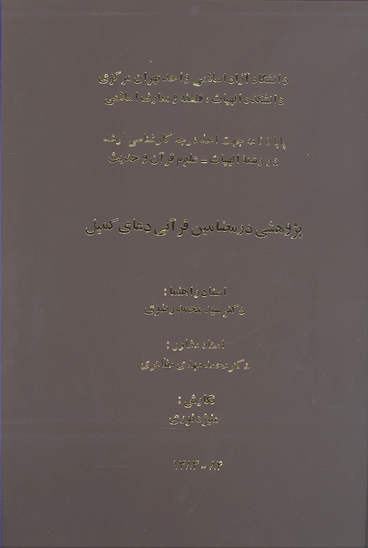 دانشگاه آزاد اسلامی واحد تهران مرکزی
دانشکده الهیات، فلسفه و معارف اسلامی
پایان نامه جهت اخذ درجه کارشناسی ارشد
در رشته الهیات - علوم قرآن و حدیث
پژوهشی در مضامین قرآنی دعای کمیل
استاد راهنما :
دکتر سید محمد رضوی
استاد مشاور :
دکتر محمد مهدی مظاهری
نگارش :
نوری
۱۳۸۳-۸۴